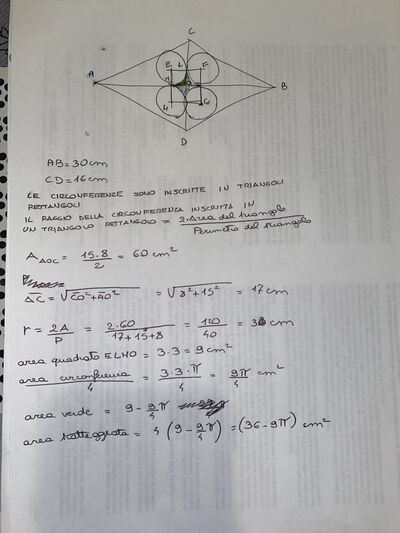 C
E L F
A M O B
H G
D
AB = 30 cm
CD = 16 cm
LE CIRCONFERENZE SONO INSCRITTE IN TRIANGOLI
RETTANGOLI
IL RAGGIO DELLA CIRCONFERENZA INSCRITTA IN
UN TRIANGOLO RETTANGOLO = 2·Area del triangolo / Perimetro del triangolo
A AOC = 15·8 / 2 = 60 cm²
AC = √CO²+AO² = √8²+15² = 17 cm
r = 2A / P = 2·60 / 17+15+8 = 120 / 40 = 3 cm
area quadrato ELMO = 3·3 = 9 cm²
area circonferenza / 4 = 3·3·π / 4 = 9π / 4 cm²
area verde = 9 - 9π / 4
area tratteggiata = 4 (9 - 9π / 4) = (36 - 9π) cm²